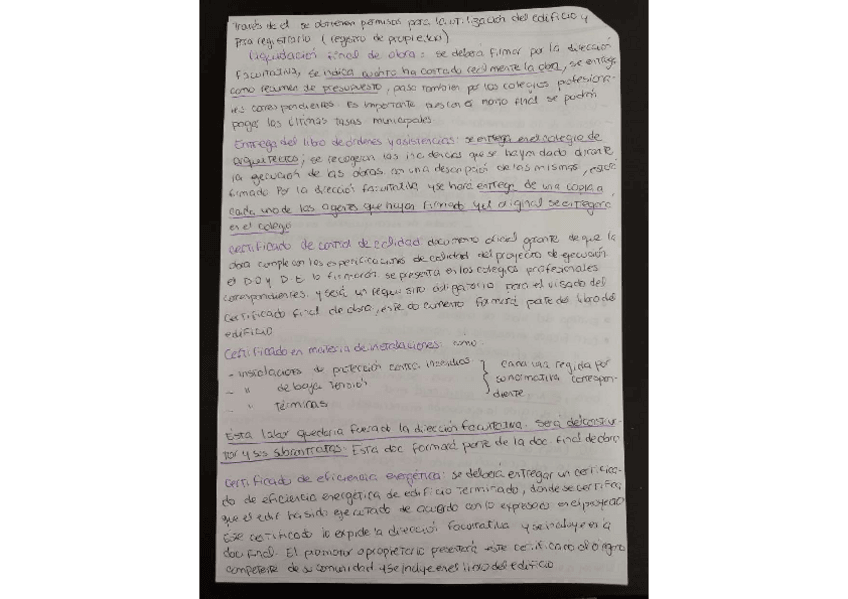 Través de el se obtienen permisos para la utilización del edificio y
para registrarlo (registro de propiedad)
Liquidación final de obra: se deberá firmar por la dirección
facultativa, se indica cuanto ha costado realmente la obra, se entrega
como resumen de presupuesto, paso también por los colegios profesiona-
les correspondientes. Es importante pues con el mano final se podrán
pagar las últimas tasas municipales
Entrega del libro de órdenes y asistencias: se entrega en el colegio de
arquitectos, se recogeran las incidencias que se hayan dado durante
la ejecución de las obras con una descripción de las mismas, estará
firmado por la dirección facultativa y se hará entrega de una copia a
cada uno de los agentes que hayan firmado y el original se entregara
en el colegio
Certificado de control de calidad: documento oficial grante de que la
obra cumple con las especificaciones de calidad del proyecto de ejecución
el D.O y D.E lo firmarán, se presenta en los colegios profesionales
correspondientes. y será un requisito obligatorio para el visado del
certificado final de obra, este documento formará parte del libro del
edificio
Certificado en materia de instalaciones: como:
- instalaciones de protección contra incendios
- " de baja tensión
- " térmicas
cada una regida por
su normativa correspon-
diente.
Esta labor quedaría fuera de la dirección facultativa. Será del construc-
tor y sus subcontratas. Esta doc formará parte de la doc final de obra
Certificado de eficiencia energética: se deberá entregar un certifica-
do de eficiencia energética de edificio terminado, donde se certifica
que el edif ha sido ejecutado de acuerdo con lo expresado en el proyecto
Este certificado lo expide la dirección facultativa y se incluye en la
doc final. El promotor o propietario presentará este certificado al órgano
competente de su comunidad y se incluye en el libro del edificio